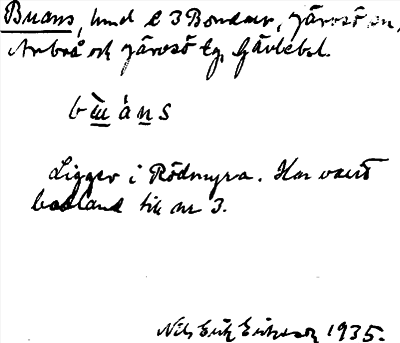 Buans, lund e 3 Bondarv, Järvsö sn,
Arbrå och Järvsö tg, Gävlebl.
b ɯ́ à n s
Ligger i Rödmyra. Har varit
bodland till nr 3.
Nils Erik Eriksson 1935.